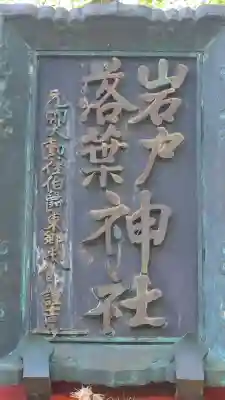 岩戸
落葉
神社
元帥大勲位伯爵東郷平八郎謹書